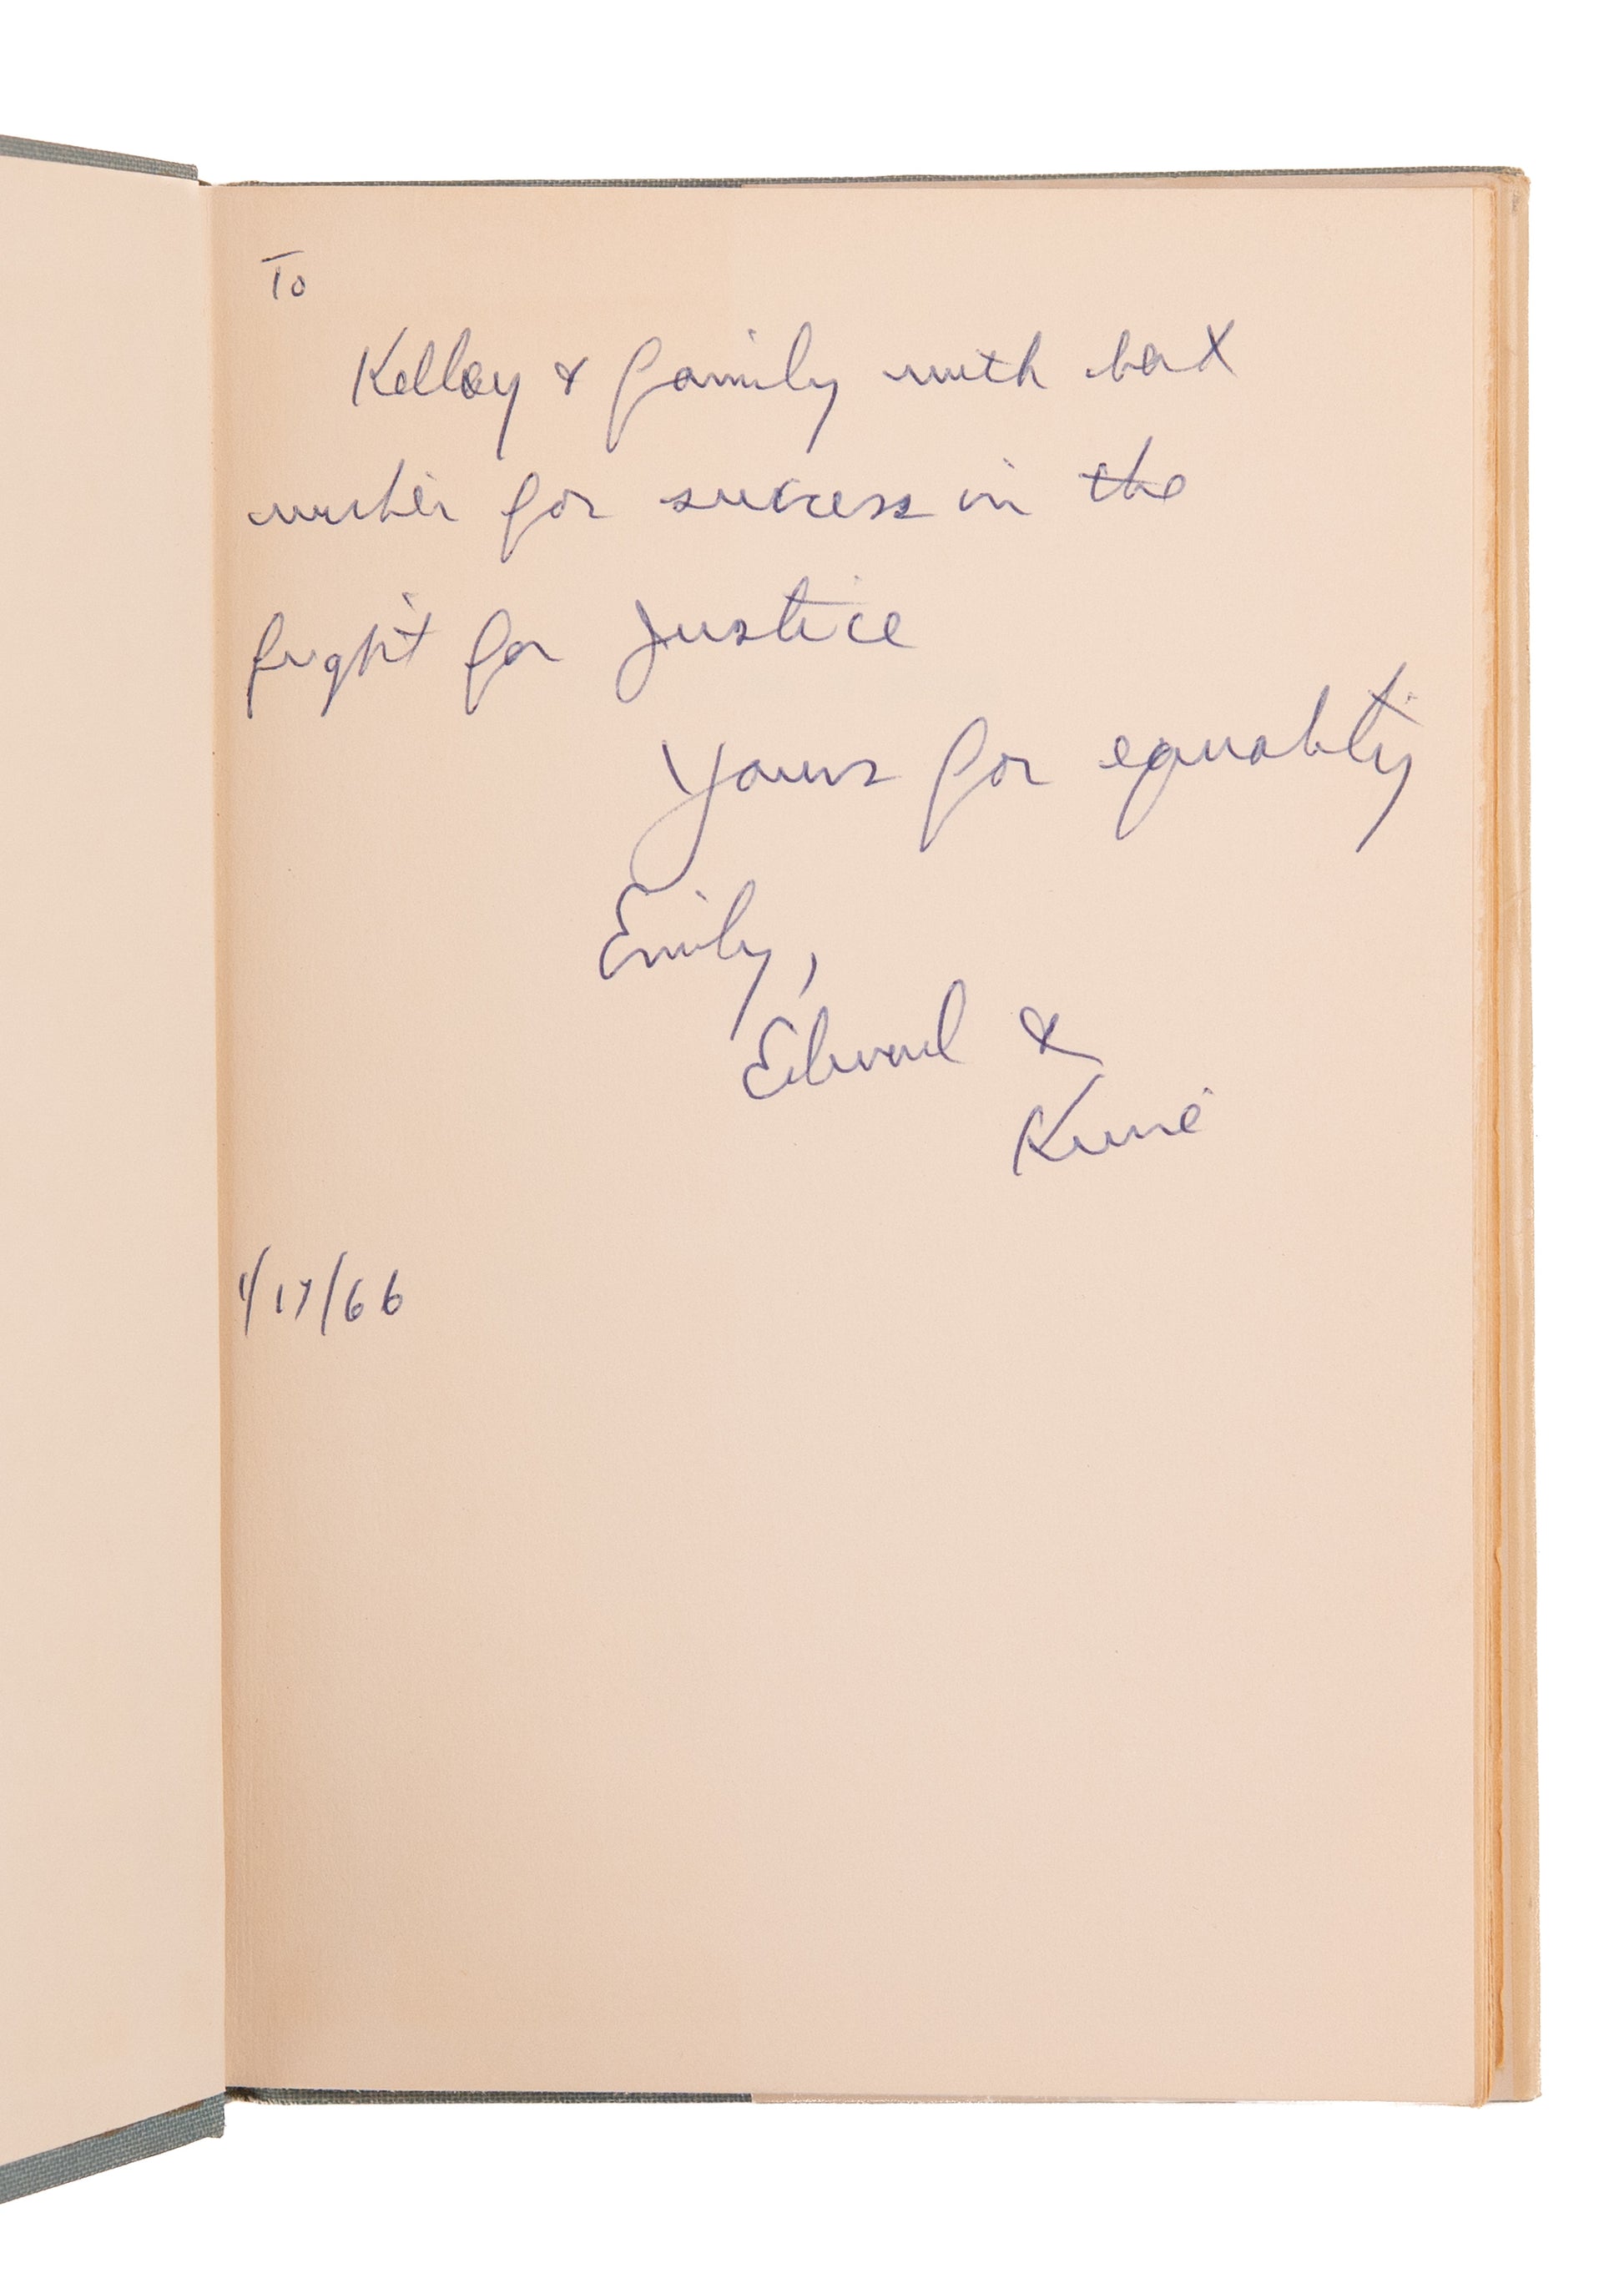 To
Kelley & family with best
wishes for success in the
fight for Justice
Yours for equality
Emily,
Edward &
1/17/66